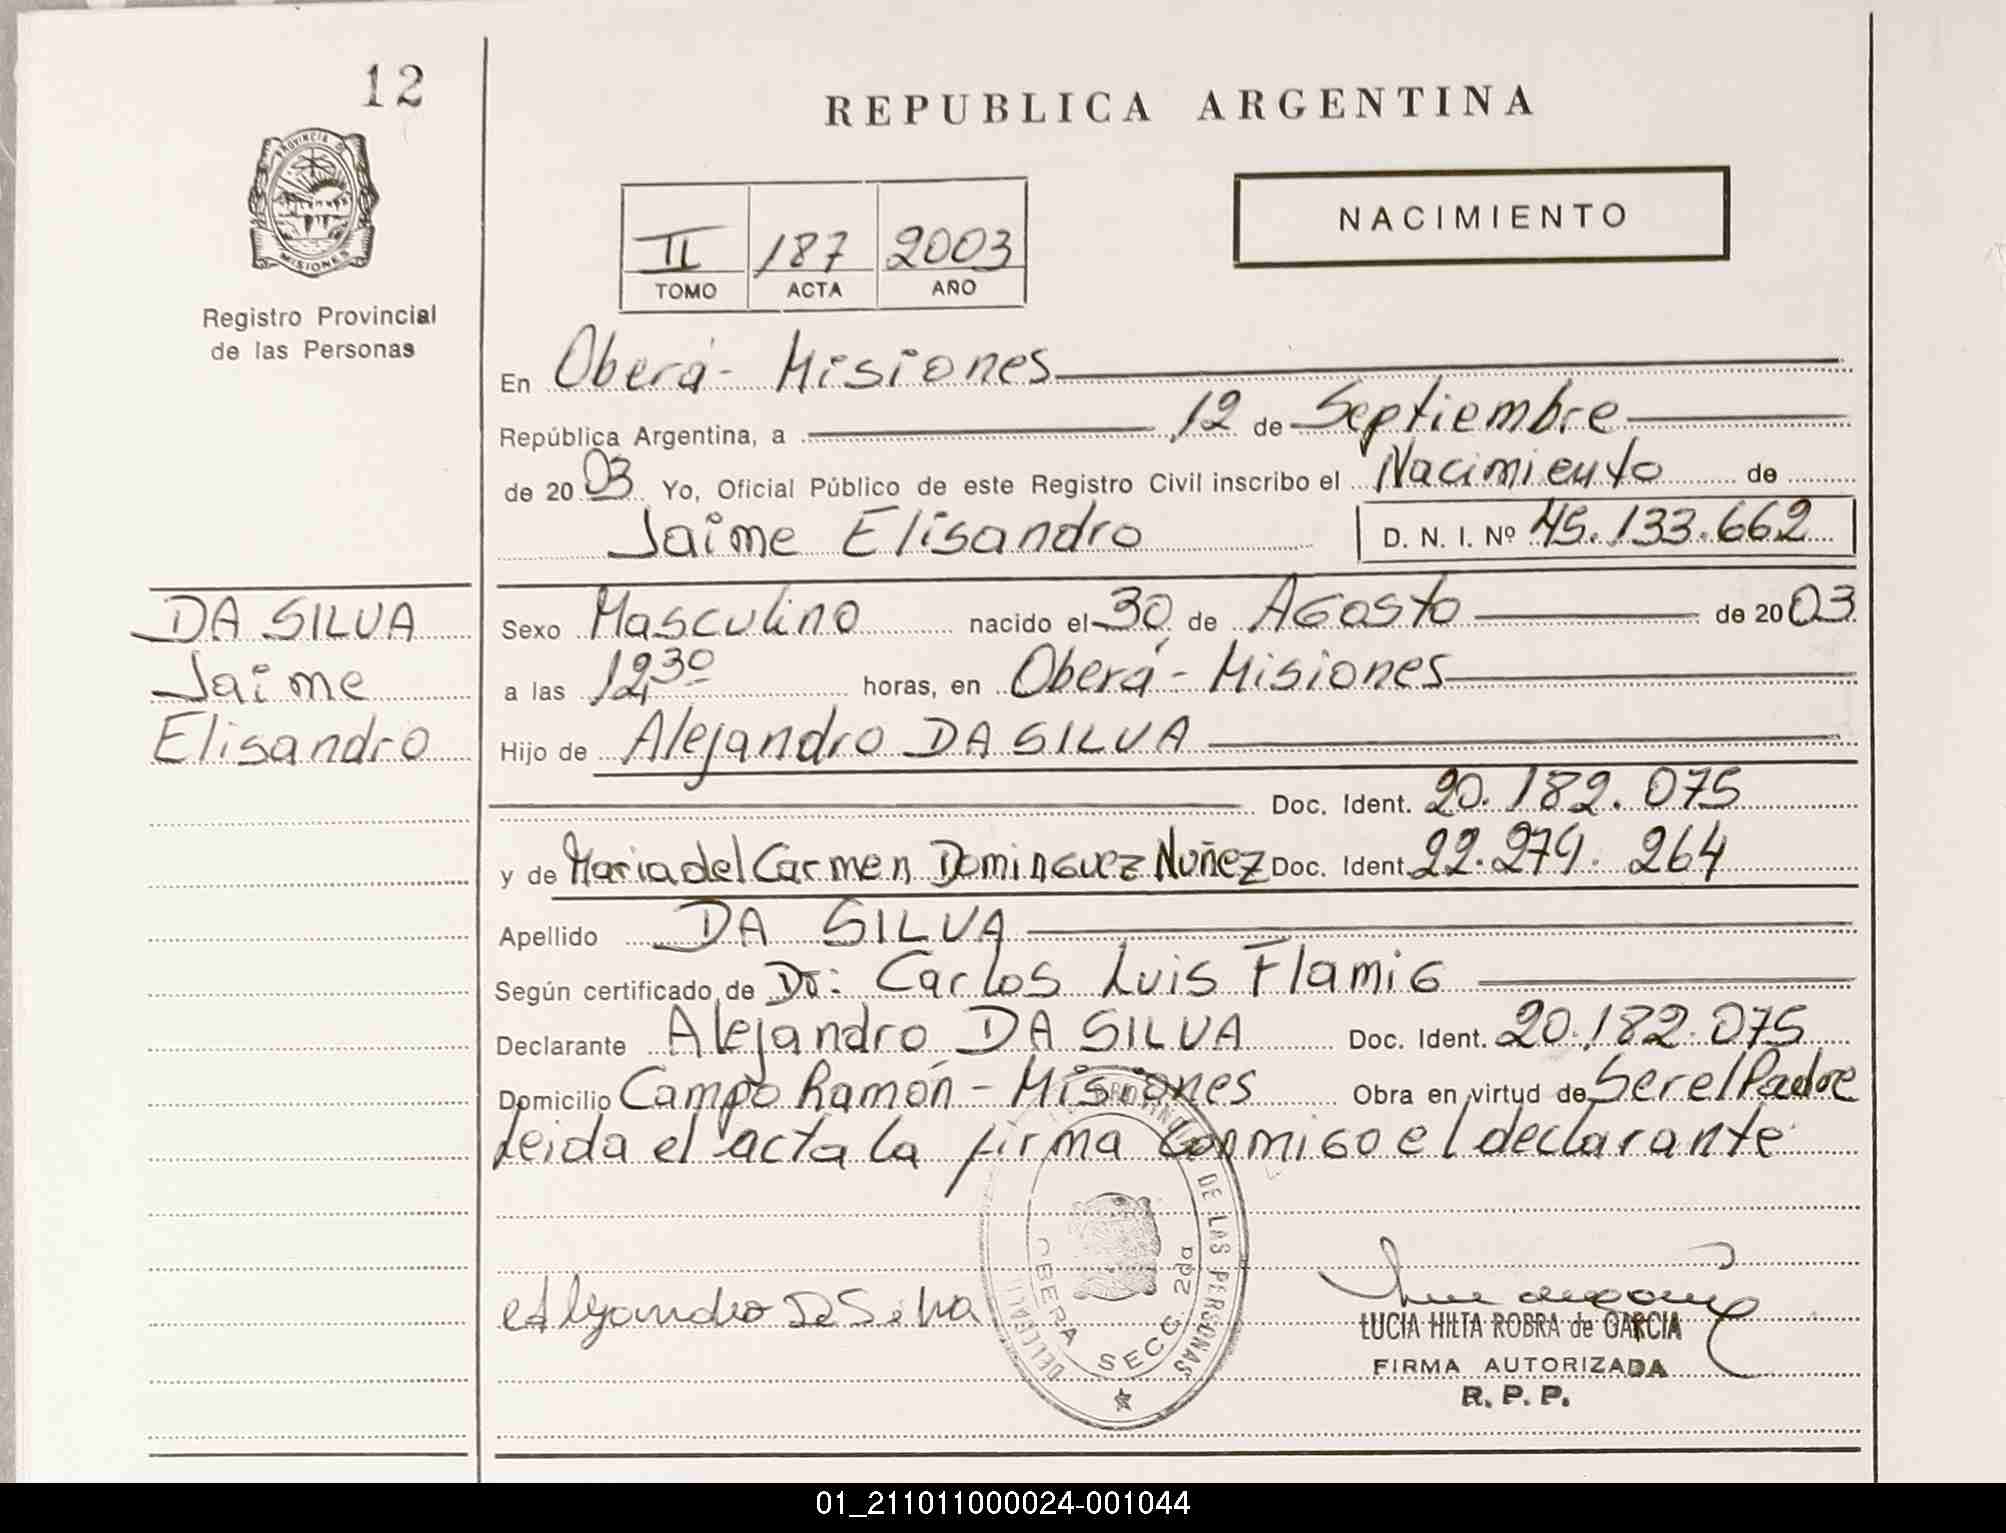 12
REPUBLICA ARGENTINA
PROVINCIA D
MISIONES
NACIMIENTO
II 187 2003
TOMO ACTA AÑO
Registro Provincial
de las Personas
En Oberá - Misiones
República Argentina, a 12 de Septiembre
de 2003 Yo, Oficial Público de este Registro Civil inscribo el Nacimiento de
Jaime Elisandro D. N. I. Nº 45.133.662
DA SILVA
Jaime
Elisandro
Sexo Masculino nacido el 30 de Agosto de 2003
a las 12 30 horas, en Oberá - Misiones
Hijo de Alejandro DA SILVA
Doc. Ident. 20.182.075
y de Maria del Carmen Dominguez Nuñez Doc. Ident. 22.279.264
Apellido DA SILVA
Según certificado de Dr: Carlos Luis Flamig
Declarante Alejandro DA SILVA Doc. Ident. 20.182.075
Domicilio Campo Ramón - Misiones Obra en virtud de Ser el Padre
Leida el acta la firma conmigo el declarante
DE LAS PERSONAS
OBERA SECC. 2da
Alejandro Da Silva
LUCIA HILTA ROBRA de GARCIA
FIRMA AUTORIZADA
R. P. P.
01_211011000024-001044